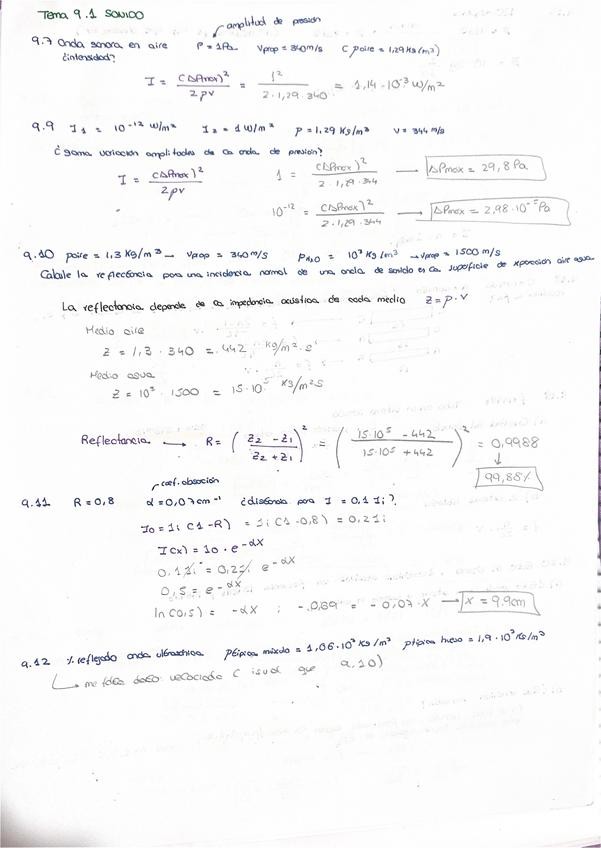 Tema 9.1 SONIDO
amplitud de presión
9.7 Onda sonora en aire P = 1Pa Vprop = 340m/s (ρaire = 1,29 Kg/m³)
¿intensidad?
I = (ΔPmax)² / 2ρv = 1² / 2·1,29·340 = 1,14·10⁻³ W/m²
9.9 I1 = 10⁻¹² W/m² I2 = 1 W/m² ρ = 1,29 Kg/m³ v = 344 m/s
¿gama variación amplitudes de la onda de presión?
I = (ΔPmax)² / 2ρv 1 = (ΔPmax)² / 2·1,29·344 → ΔPmax = 29,8 Pa
10⁻¹² = (ΔPmax)² / 2·1,29·344 → ΔPmax = 2,98·10⁻⁵ Pa
9.10 ρaire = 1,3 Kg/m³ → Vprop = 340 m/s ρH2O = 10³ Kg/m³ → Vprop = 1500 m/s
Calcule la reflectancia para una incidencia normal de una onda de sonido en la superficie de separación aire agua
La reflectancia depende de la impedancia acústica de cada medio Z = ρ·V
Medio aire
Z = 1,3 · 340 = 442 Kg/m²·s
Medio agua
Z = 10³ · 1500 = 15·10⁵ Kg/m²s
Reflectancia → R = (Z2 - Z1 / Z2 + Z1)² = (15·10⁵ - 442 / 15·10⁵ + 442)² = 0,9988
↓
99,88%
coef. absorción
9.11 R = 0,8 α = 0,07cm⁻¹ ¿distancia para I = 0,1 Ii?
I0 = Ii (1-R) = Ii (1-0,8) = 0,2Ii
I(x) = I0 · e^-αx
0,1Ii = 0,2Ii e^-αx
0,5 = e^-αx
ln(0,5) = -αx ; -0,69 = -0,07·x → x = 9.9cm
9.12 % reflejado onda ultrasónica ρtípica músculo = 1,06·10³ Kg/m³ ρtípica hueso = 1,9·10³ Kg/m³
me falta dato velocidad (igual que 9.10)